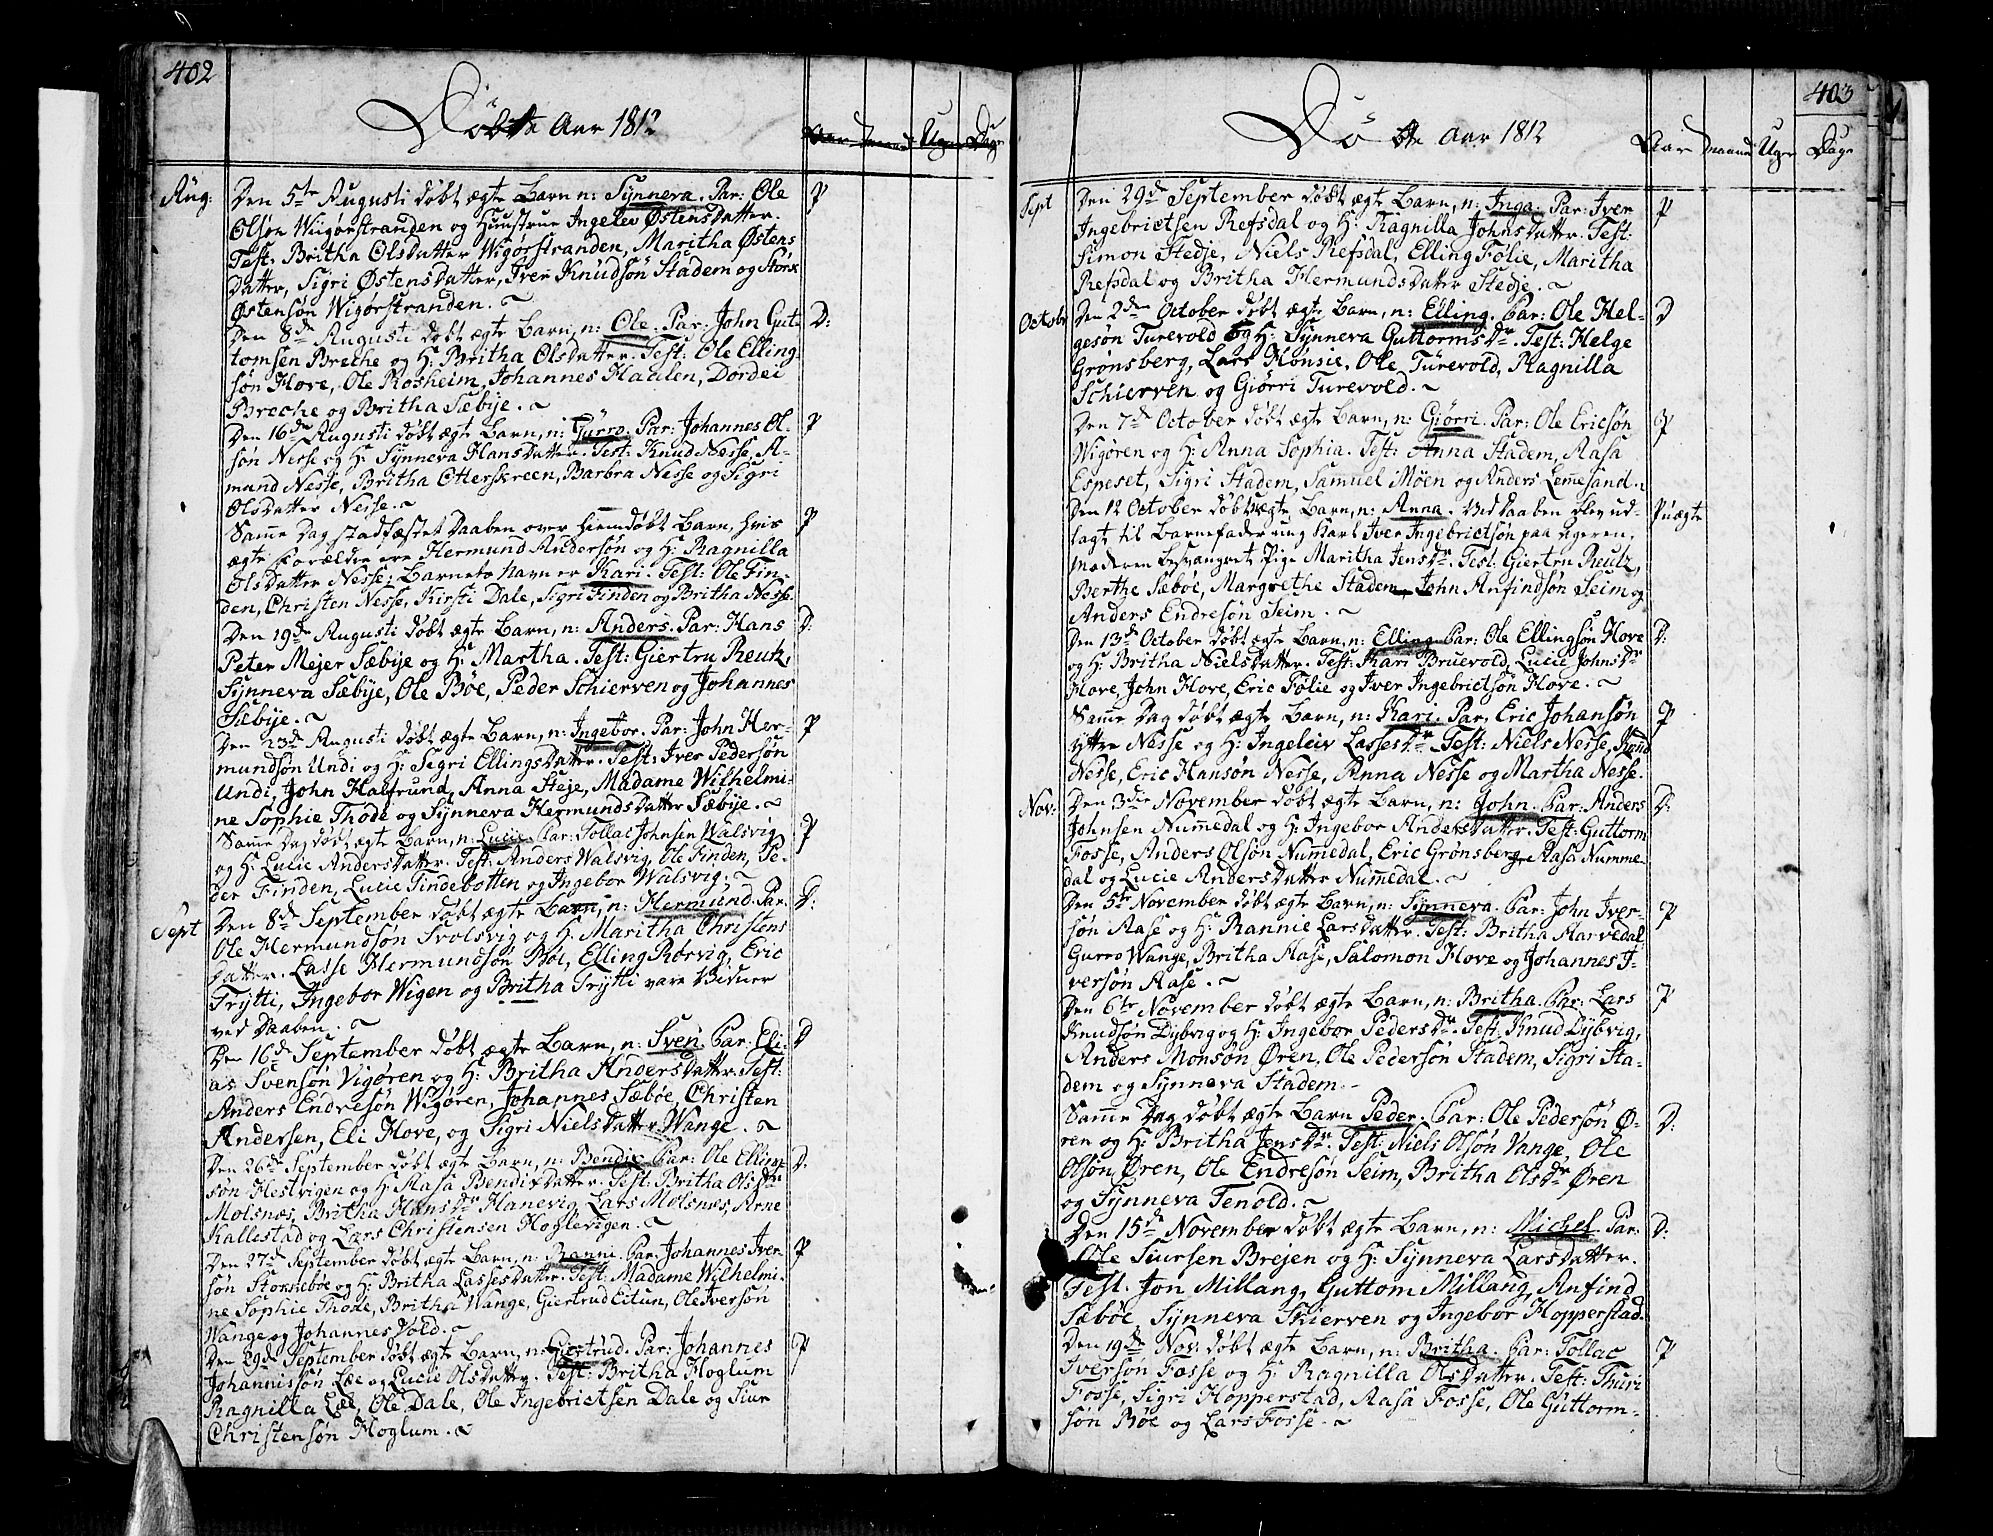 402
Döbte Aar 1812
Aar Maaned Uger Dage
Aug: Den 5te Augusti döbt ægte Barn n: Synneva. Par: Ole P
Olsön Wigörstranden og Huustrue Ingelev Östensdatter.
Test: Britha Olsdatter Wigörstranden, Maritha Östens
datter, Sigri Östensdatter, Iver Knudsön Stadem og Störk
Östensön Wigörstranden.
Den 8de Augusti döbt ægte Barn, n: Ole. Par: John Gut- D:
tomsen Breche og H: Britha Olsdatter. Test: Ole Elling
sön Hove, Ole Rosheim, Johannes Haalen, Dordei
Breche og Britha Sæbije.
Den 16de Augusti döbt ægte Barn, n: Gurro. Par: Johannes Ol- P
sön Nesse og H: Synneva Hansdatter. Test: Knud Nesse, A-
mund Nesse, Britha Otterskreen, Barbra Nesse og Sigri
Olsdatter Nesse.
Samme Dag stadfæstet Daaben over hiemdöbt Barn, hvis P
ægte Forældre ere Hermund Andersön og H: Ragnilla
Olsdatter Nesse; Barnets Navn er Kari. Test: Ole Fin-
den, Christen Nesse, Kirsti Dale, Sigri Finden og Britha Nesse.
Den 19de Augusti döbt ægte Barn, n: Anders. Par: Hans D:
Peter Mejer Sæbije og H: Martha. Test: Giertru Reutz,
Synneva Sæbije, Ole Böe, Peder Schierven og Johannes
Sæbije.
Den 23de Augusti döbt ægte Barn, n: Ingebor. Par: John Her- P
mundsön Undi og H: Sigri Ellingsdatter. Test: Iver Pedersön
Undi, John Halfrund, Anna Steje, Madame Wilhelmi-
ne Sophie Thode og Synneva Hermundsdatter Sæbije.
Samme Dag döbt ægte Barn, n: Lucie. Par: Tollac Johnsen Walsvig P
og H: Lucie Andersdatter. Test: Anders Walsvig, Ole Finden, Pe-
der Finden, Lucie Findebotten og Ingebor Walsvig.
Sept Den 8de September döbt ægte Barn, n: Hermund. Par: D:
Ole Hermundsön Svolsvig og H: Maritha Christens
datter. Lasse Hermundsön Böi, Elling Rörvig, Eric
Trytti, Ingebor Wigen og Britha Trytti vare Vidner
ved Daaben.
Den 16de September döbt ægte Barn, n: Sven. Par: Eli- D
as Svensön Vigören og H: Britha Andersdatter. Test:
Anders Endresön Wigören, Johannes Sæböe, Christen
Andersen, Eli Hove, og Sigri Nielsdatter Wange.
Den 26de September döbt ægte Barn, n: Bendix. Par: Ole Elling D.
sön Hestvigen og H: Aasa Bendixdatter. Test: Britha Olsdtr
Molsnæs, Britha Hansdr Hanevig, Lars Molsnæs, Arne
Kallestad og Lars Christensen Hoglevigen.
Den 27de September döbt ægte Barn, n: Ranni. Par: Johannes Iver P
sön Storkeböe og H: Britha Lassesdatter. Test: Madame Wilhelmi-
ne Sophie Thode, Britha Wange, Giertrud Eitun, Ole Iversön
Wange og Johannes Vold.
Den 29de September döbt ægte Barn, n: Giertrud. Par: Johannes P
Johannissön Læe og Lucie Olsdatter. Test: Britha Hoglum
Ragnilla Læe, Ole Dale, Ole Ingebrictsen Dale og Siur
Christensön Hoglum.
403
Döbte Aar 1812
Aar Maaned Uger Dage
Sept Den 29de September döbt ægte Barn, n: Inga. Par: Iver P
Ingebrictsen Refsdal og H: Ragnilla Johnsdatter. Test:
Simon Stedje, Niels Refsdal, Elling Fölie, Maritha
Refsdal og Britha Hermundsdatter Stedje.
Octobr Den 2de October döbt ægte Barn, n: Elling. Par: Ole Hel- D
gesön Turevold og H: Synneva Guttormsdr. Test: Helge
Grönsberg, Lars Hönsie, Ole Turevold, Ragnilla
Schierven og Giörri Turevold.
Den 7de October döbt ægte Barn, n: Giörri. Par: Ole Ericsön P
Wigören og H: Anna Sophia. Test: Anna Stadem, Aasa
Espeset, Sigri Stadem, Samuel Möen og Anders Lemesand.
Den 12 October döbt uægte Barn, n: Anna. Ved Daaben blev ud- P uægte
lagt til Barnefader ung Karl Iver Ingebrictsön paa Ugeren,
Moderen besvangret Pige Maritha Jensdr. Test: Giertru Reutz,
Berthe Sæböe, Margrethe Stadem, John Anfindsön Seim og
Anders Endresön Seim.
Den 13de October döbt ægte Barn, n: Elling. Par: Ole Ellingsön Hove D:
og H: Britha Nielsdatter. Test: Kari Bruevold, Lucie Johnsdr
Hove, John Hove, Eric Fölie og Iver Ingebrictsön Hove.
Samme Dag döbt ægte Barn, n: Kari. Par. Eric Johansön P
Yttre Nesse og H: Ingeleiv Lassesdr. Test: Niels Nesse, Knud
Nesse, Eric Hansön Nesse, Anna Nesse og Martha Nesse.
Nov: Den 3die November döbt ægte Barn, n: John. Par: Anders D:
Johnsen Nummedal og H: Ingebor Andersdatter. Test: Guttorm
Fosse, Anders Olsön Numedal, Eric Grönsberg, Aasa Numme-
dal og Lucie Andersdatter Nummedal.
Den 5te November döbt ægte Barn, n: Synneva. Par: John Iver- P
sön Aase og H: Rannie Larsdatter. Test: Britha Aarvedal
Gurro Wange, Britha Aase, Salomon Hove og Johannes I-
versön Aase.
Den 6te November döbt ægte Barn, n: Britha. Par: Lars P
Knudsön Dybvig og H: Ingebor Pedersdr. Test: Knud Dybvig,
Anders Monsön Ören, Ole Pedersön Stadem, Sigri Sta-
dem og Synneva Stadem.
Samme Dag döbt ægte Barn Peder. Par: Ole Pedersön Ö- D:
ren og H: Britha Jensdr. Test: Niels Olsön Vange, Ole
Olsön Ören, Ole Endresön Seim, Britha Olsdr Ören
og Synneva Tenold.
Den 15de November döbt ægte Barn, n: Michel. Par: D:
Ole Siursen Brejen og H: Synneva Larsdatter.
Test. Jon Millang, Guttom Millang, Anfind
Sæböe, Synneva Skierven og Ingebor Hopperstad.
Den 19de Nov: döbt ægte Barn, n: Britha. Par: Tollac P
Iversön Fosse og H: Ragnilla Olsdatter. Test: Thuri
Fosse, Sigri Hopperstad, Aasa Fosse, Ole Guttorm-
sön Böe og Lars Fosse.